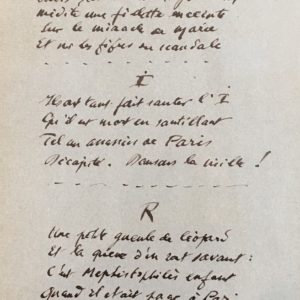 médite une
Sur le miracle
Et sur les figues en scandale
I
Ils ont tant fait sauter l'I
Qu'il est mort en sautillant
Tel un assassin de Paris
Décapité. Dansons la veille !
R
Une petite gueule de léopard
Et la queue d'un rat savant :
C'est Mephistophélès enfant
Quand il était page à